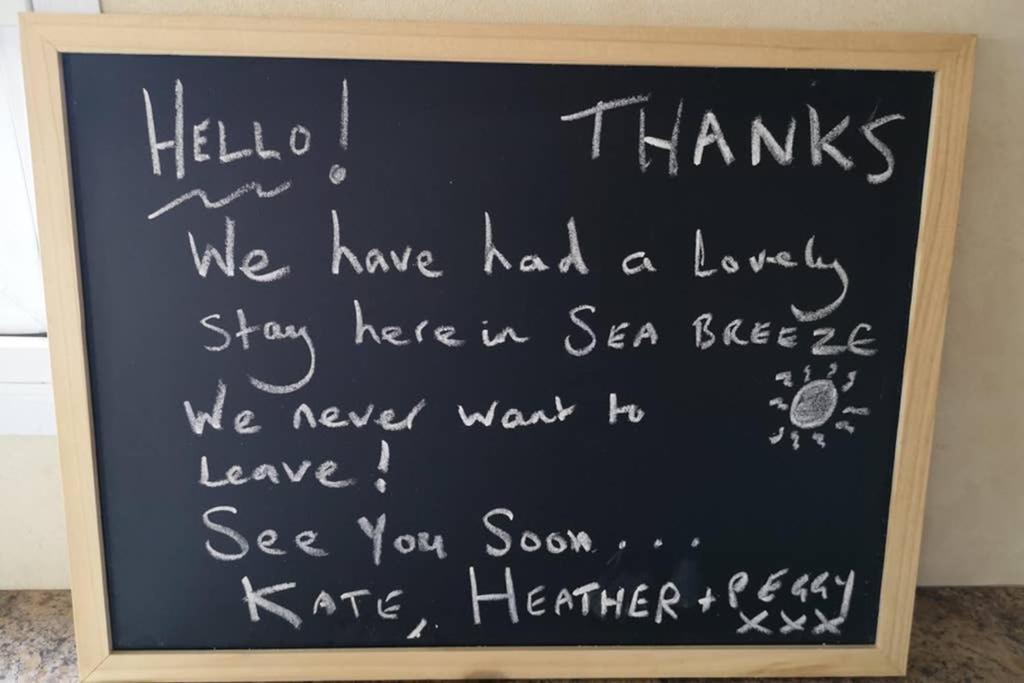 HELLO! THANKS
We have had a Lovely
Stay here in SEA BREEZE
We never want to
Leave!
See You Soon....
KATE, HEATHER + PEGGY
xxx